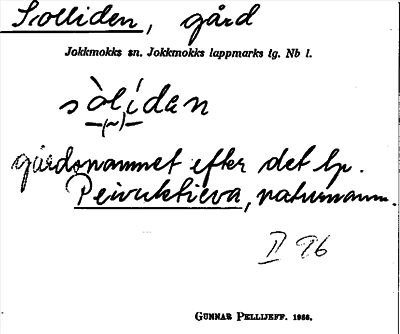 Solliden, gård
Jokkmokks sn. Jokkmokks lappmarks tg. Nb l.
sòlídan
gårdsnamnet efter det lp.
Peivuktieva, naturnamn.
II 96
GUNNAR PELLIJEFF. 1966.